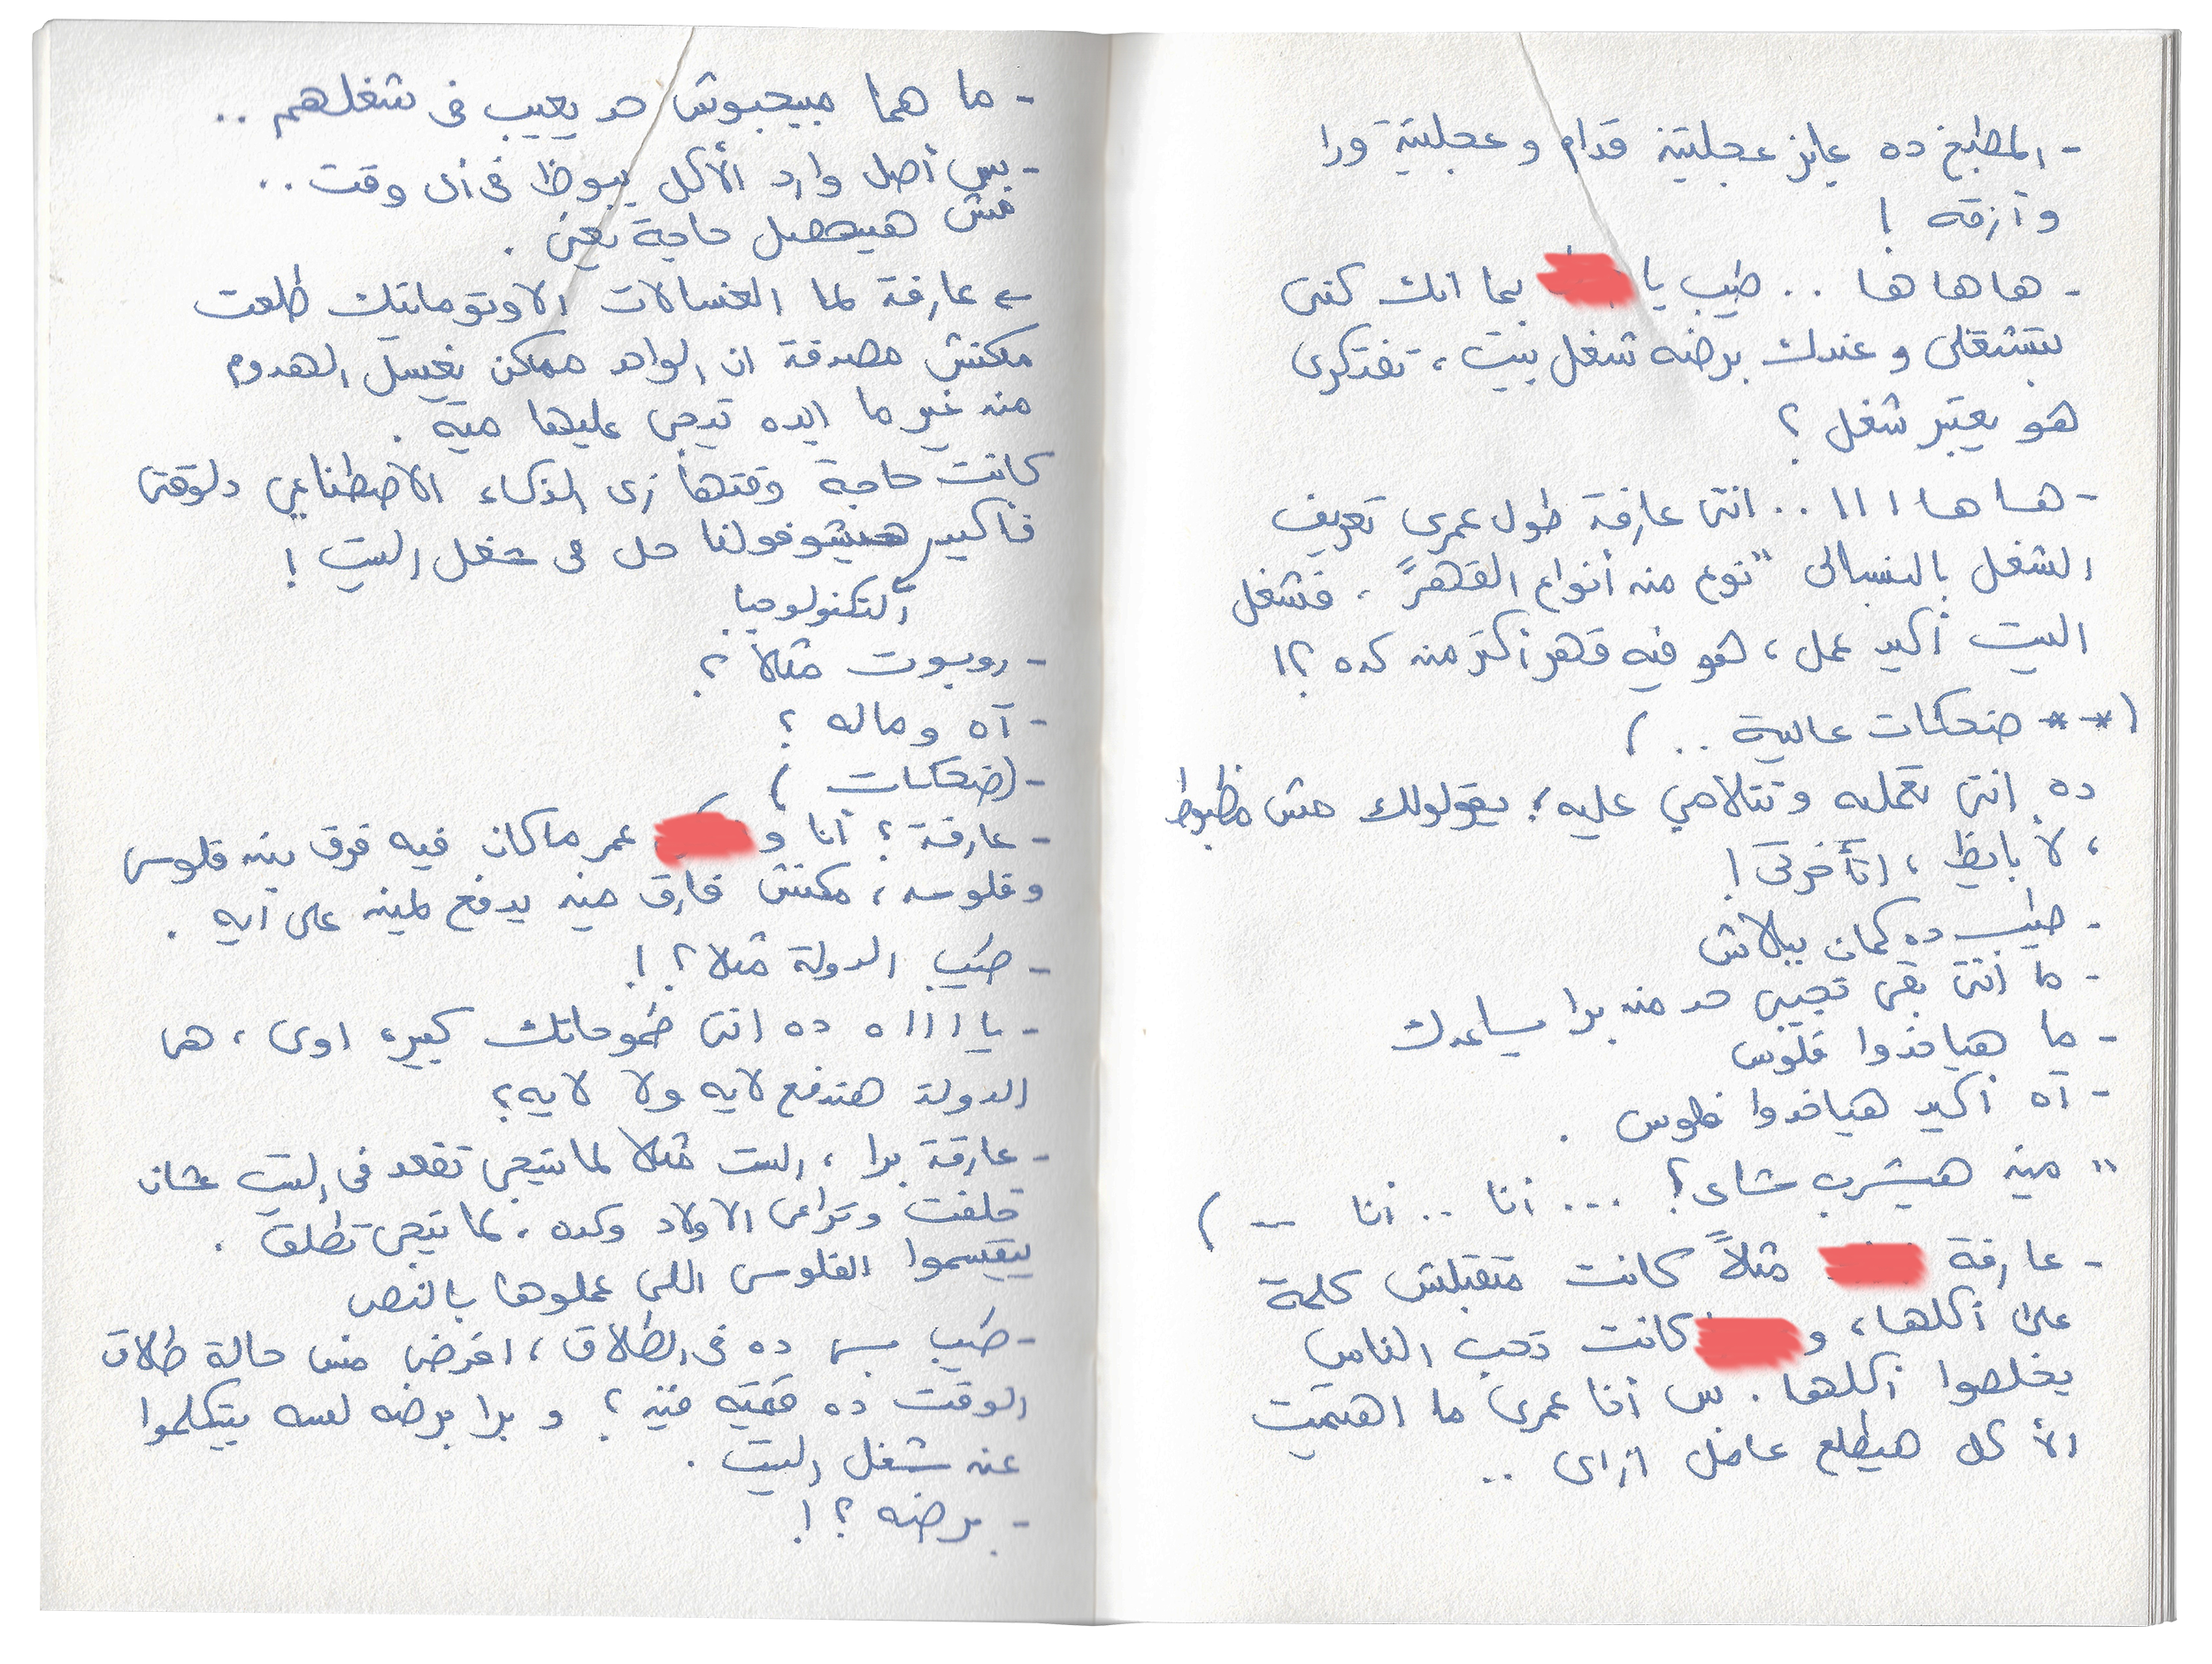 - المطبخ ده عايز عجلتين قدام و عجلتين ورا
وأزقه !
- هاها ها .. طيب يا بما انك كنتى
بتشتغلى و عندك برضه شغل بيت ، تفتكرى
هو يعتبر شغل ؟
- هاها ااا .. انتى عارفة طول عمرى تعريف
الشغل بالنسبالى "نوع من أنواع القهر" ، فشغل
البيت أكيد عمل ، هو فيه قهر أكتر من كده ؟!
(** ضحكات عالية .. )
ده انتى تعمليه وتتلامى عليه ؛ يقولولك مش مظبوط
، لا بايظ ، اتأخرتى !
- طيب ده كمان ببلاش
- ما انتى بقى تجيبى حد من برا يساعدك
- ما هياخدوا فلوس
- آه أكيد هياخدوا فلوس .
" مين هيشرب شاى ؟ ... أنا .. أنا -- )
- عارفة مثلاً كانت متقبلش كلمة
على أكلها ، و كانت تحب الناس
يخلصوا أكلها . بس أنا عمرى ما اهتميت
الأكل هيطلع عامل ازاى ..
- ما هما مبيحبوش حد يعيب فى شغلهم ..
- بس أصل وارد الأكل يبوظ فى أى وقت ..
مش هيحصل حاجة يعنى .
عارفة لما الغسالات الاوتوماتيك طلعت
مكنتش مصدقة ان الواحد ممكن يغسل الهدوم
من غير ما ايده تيجى عليها مية .
كانت حاجة وقتها زى الذكاء الاصطناعي دلوقتى
فأكيد هيشوفولنا حل فى شغل البيت !
التكنولوجيا
- روبوت مثلاً ؟
- آه وماله ؟
- (ضحكات )
- عارفة ؟ أنا و عمر ما كان فيه فرق بين فلوسى
وفلوسه ، مكنتش فارق مين يدفع لمين على ايه .
- طيب الدولة مثلا ؟ !
- يا ااا ه ده انتى طموحاتك كبيره اوى ، هى
الدولة هتدفع لايه ولا لايه ؟
- عارفة برا ، الست مثلا لما بتيجى تقعد فى البيت عشان
خلفت وتراعى الاولاد وكده . لما تيجى تطلق .
بيقسموا الفلوس اللى عملوها بالنص
- طيب بس ده فى الطلاق ، افرض مش حالة طلاق
الوقت ده قمته فين ؟ و برا برضه لسه بيتكلموا
عن شغل البيت .
- برضه ؟ !